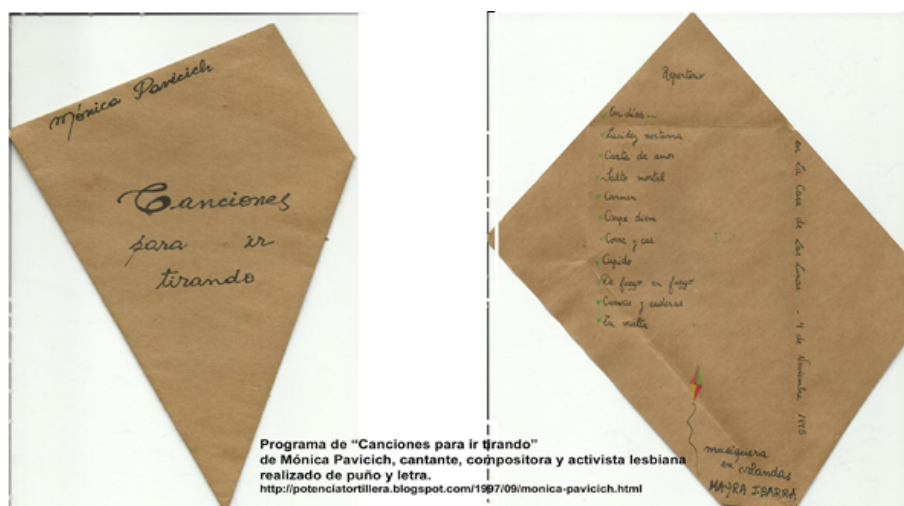 Mónica Pavicich
Canciones
para ir
tirando
Repertorio
En días...
Lucidez nocturna
Carta de amor
Salto mortal
Carmen
Carpe diem
Corre y cae
Cupido
De fuego en fuego
Curvas y caderas
en La Casa de Las Lunas - 4 de Noviembre 1995
musiquera
en volandas
MAYRA IBARRA
Programa de "Canciones para ir tirando"
de Mónica Pavicich, cantante, compositora y activista lesbiana
realizado de puño y letra.
http://potenciatortillera.blogspot.com/1997/09/monica-pavicich.html